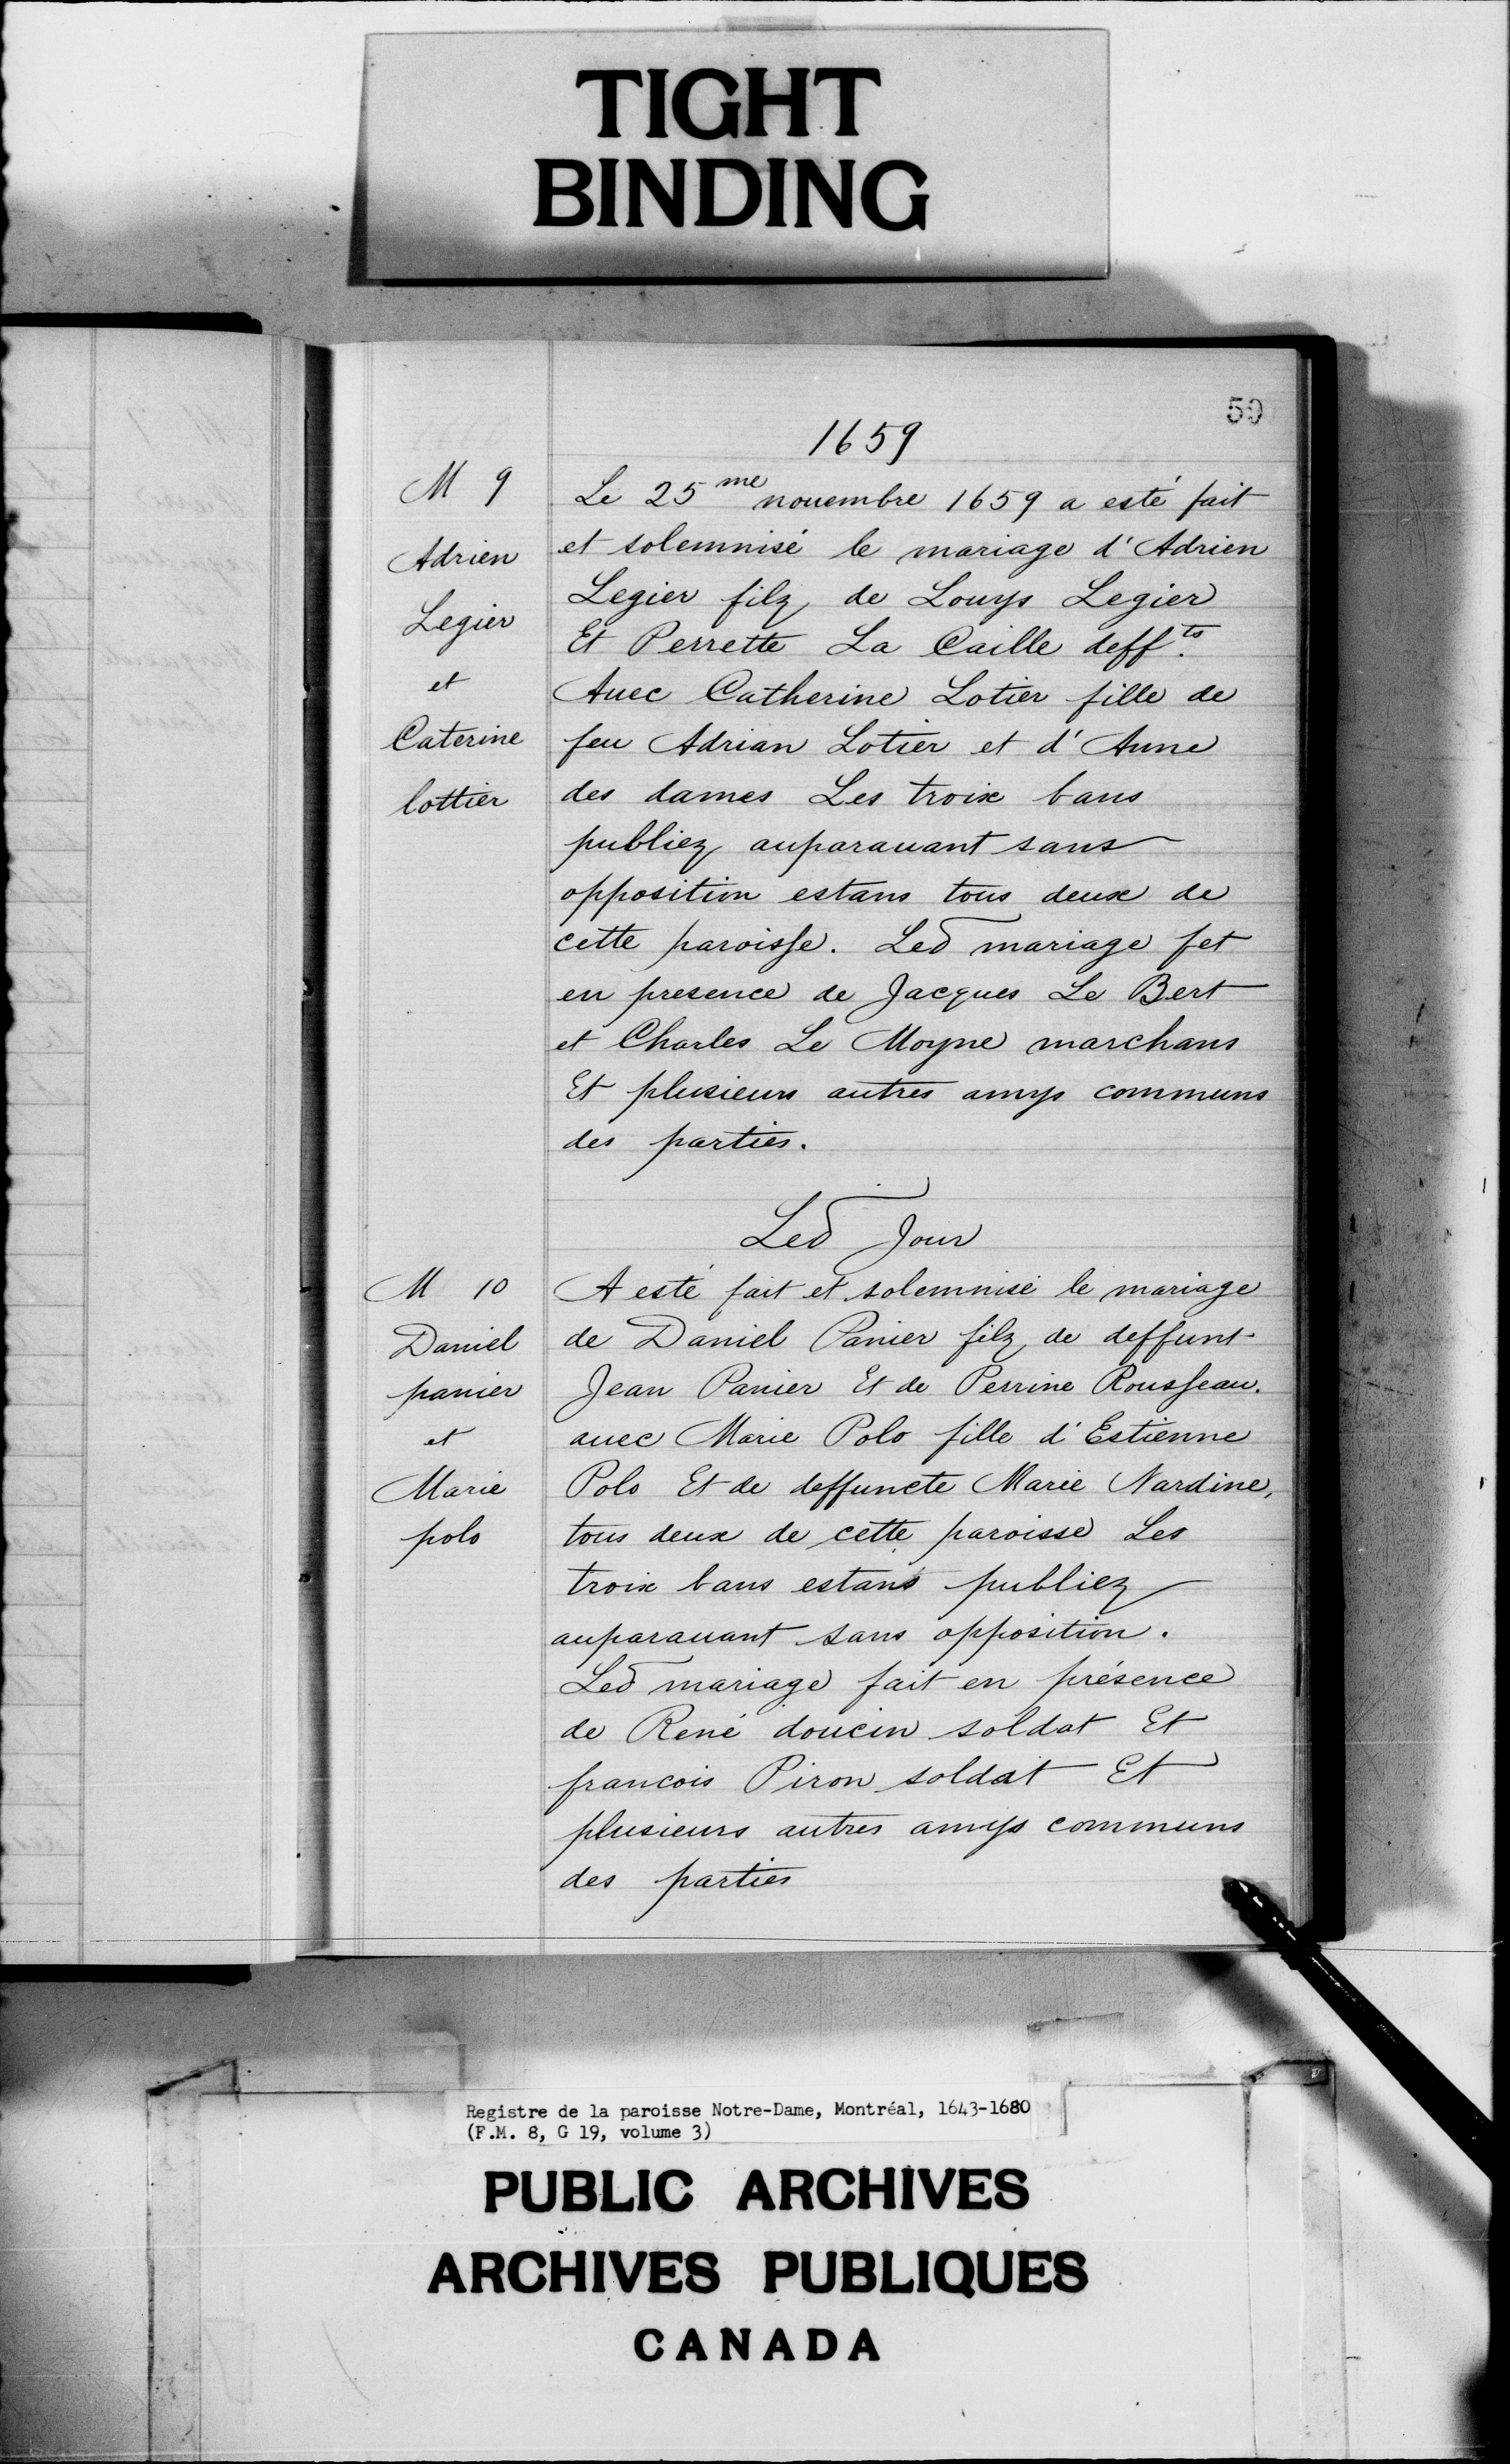 TIGHT
BINDING
59
1659
M 9
Adrien
Legier
et
Caterine
lottier
Le 25me nouembre 1659 a esté fait
et solemnisé le mariage d'Adrien
Legier filz de Louys Legier
Et Perrette La Caille deffts.
Auec Catherine Lotier fille de
feu Adrian Lotier et d'Anne
des dames Les troix bans
publiez auparauant sans
opposition estans tous deux de
cette paroisse. Led mariage fet
en presence de Jacques Le Bert
et Charles Le Moyne marchans
Et plusieurs autres amys communs
des parties.
Led Jour
M 10
Daniel
panier
et
Marie
polo
A esté fait et solemnisé le mariage
de Daniel Panier filz de deffunt
Jean Panier Et de Perrine Rousseau.
auec Marie Polo fille d'Estienne
Polo Et de deffuncte Marie Nardine,
tous deux de cette paroisse Les
troix bans estans publiez
auparauant sans opposition.
Led mariage fait en présence
de René doucin soldat Et
francois Piron soldat Et
plusieurs autres amys communs
des parties
Registre de la paroisse Notre-Dame, Montréal, 1643-1680
(F.M. 8, G 19, volume 3)
PUBLIC ARCHIVES
ARCHIVES PUBLIQUES
CANADA